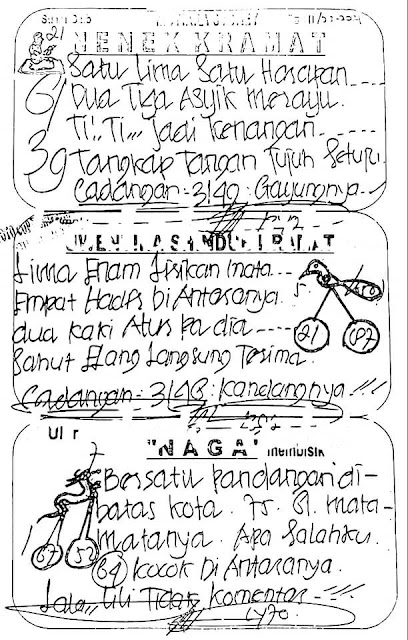 21
NENEK KRAMAT
Satu Lima Satu Harapan
61 Dua Tiga Asyik merayu.
Ti.. Ti,,, Jadi Kenangan
39 Tangkap Tangan Tujuh Seturu.
Cadangan = 3149 = Gayungnya
Lima Enam Lisikan mata
Empat Hadis Di Antaranya.
dua kaki Atus Ka dia
Sahut Elang Langsung Terima.
21 87
Cadangan = 3148 = Kandangnya
"NAGA" membisik
Bersatu pandangan di-
batas kota. Js. Si. mata-
matanya. Apa Salahku.
67 52
64 Kocok Di Antaranya.
Lala,, Lili Tidak Komentar